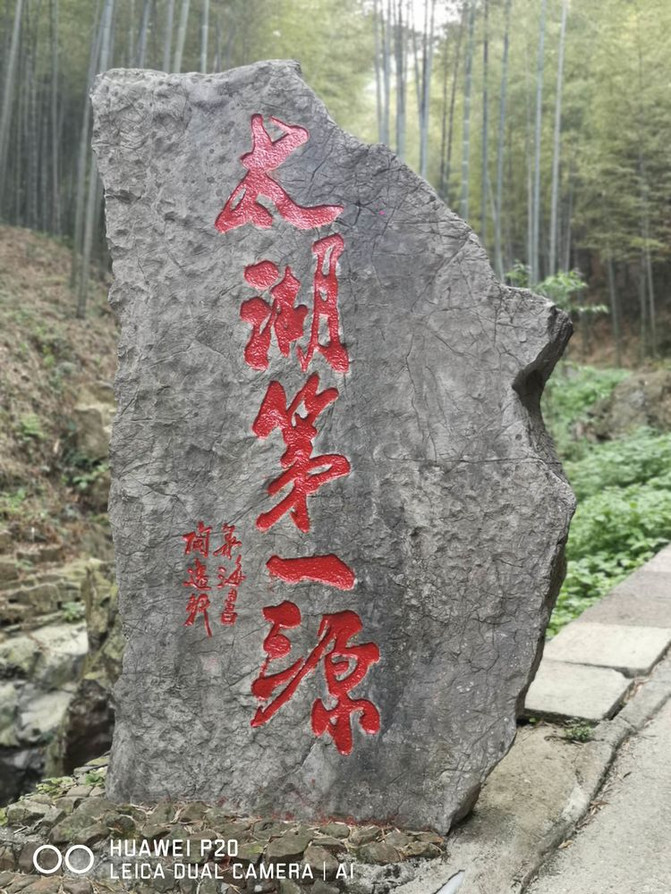 太湖第一源
HUAWEI P20
LEICA DUAL CAMERA | AI